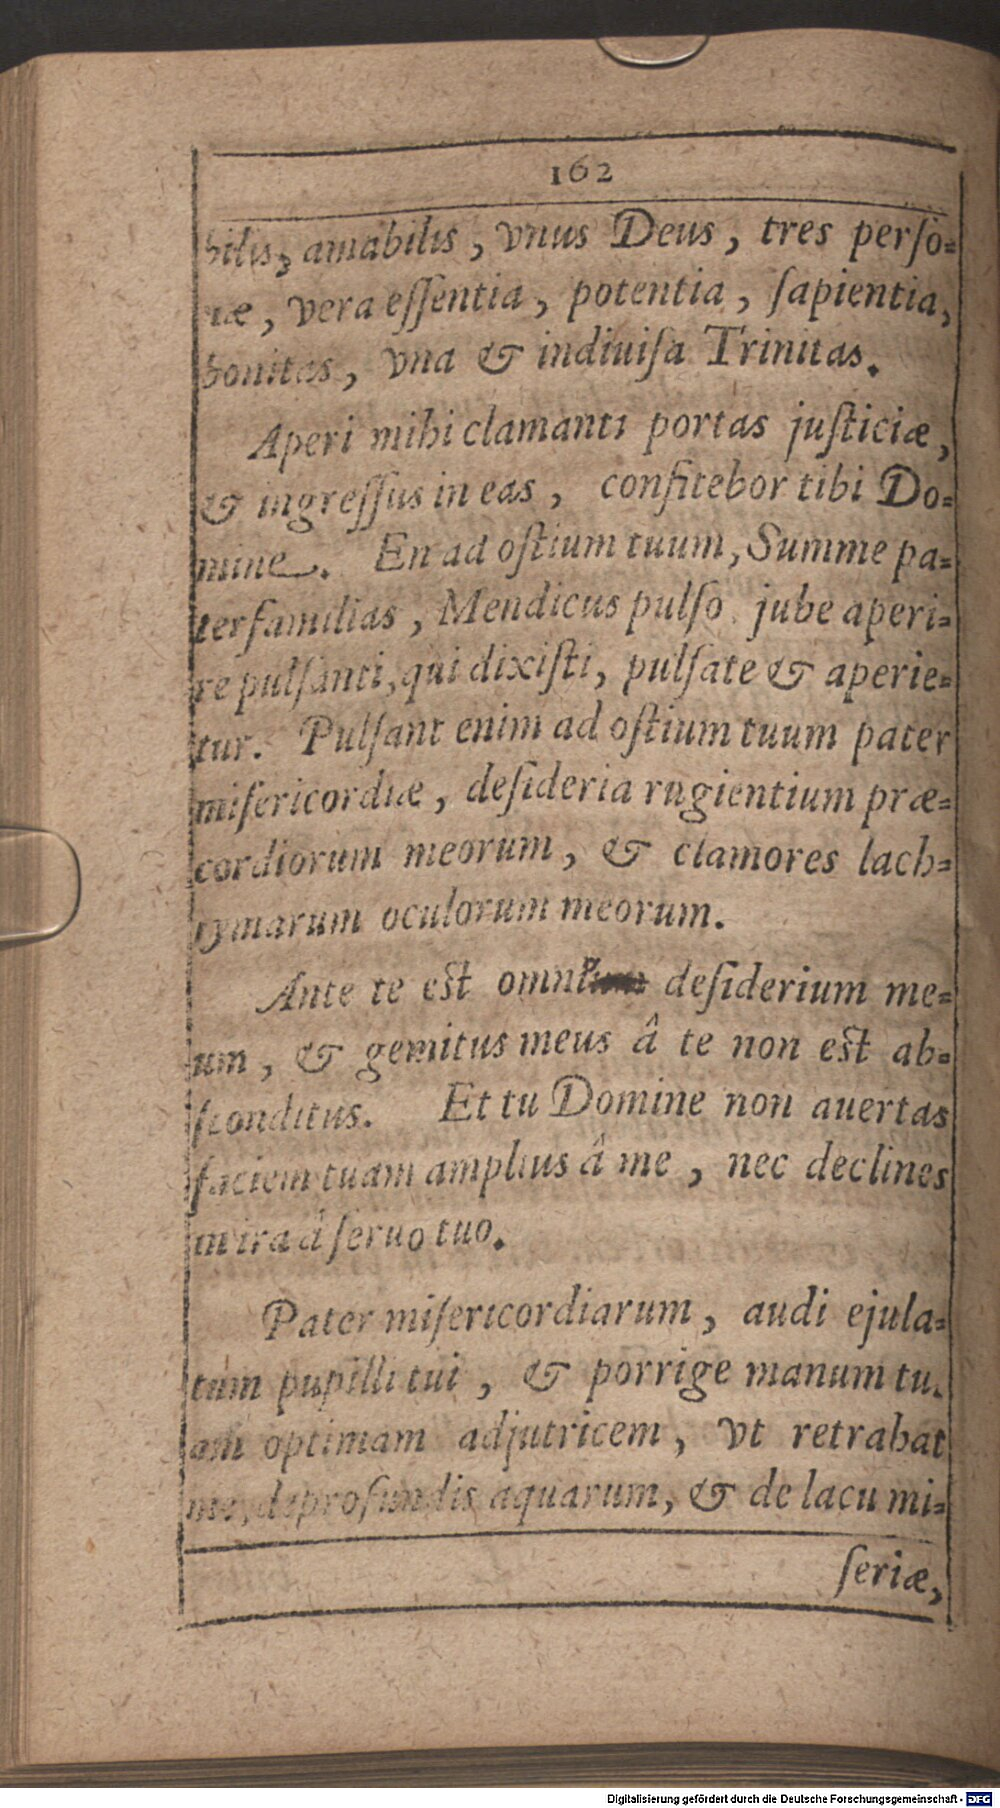 162
bilis, amabilis, vnus Deus, tres perſo=
næ, vera eſſentia, potentia, ſapientia,
bonitas, vna & indiuiſa Trinitas.
Aperi mihi clamanti portas juſticiæ,
& ingreſſus in eas, confitebor tibi Do=
mine. En ad oſtium tuum, Summe pa=
terfamilias, Mendicus pulſo, jube aperi=
re pulſanti, qui dixiſti, pulſate & aperie=
tur. Pulſant enim ad oſtium tuum pater
miſericordiæ, deſideria rugientium præ=
cordiorum meorum, & clamores lach=
rymarum oculorum meorum.
Ante te eſt deſiderium me=
um, & gemitus meus â te non eſt ab=
ſconditus. Et tu Domine non auertas
faciem tuam amplius â me, nec declines
in ira â ſeruo tuo.
Pater miſericordiarum, audi ejula=
tum pupilli tui, & porrige manum tu.
am optimam adjutricem, vt retrahat
me, de profundis aquarum, & de lacu mi=
ſeriæ,
Digitalisierung gefördert durch die Deutsche Forschungsgemeinschaft - DFG